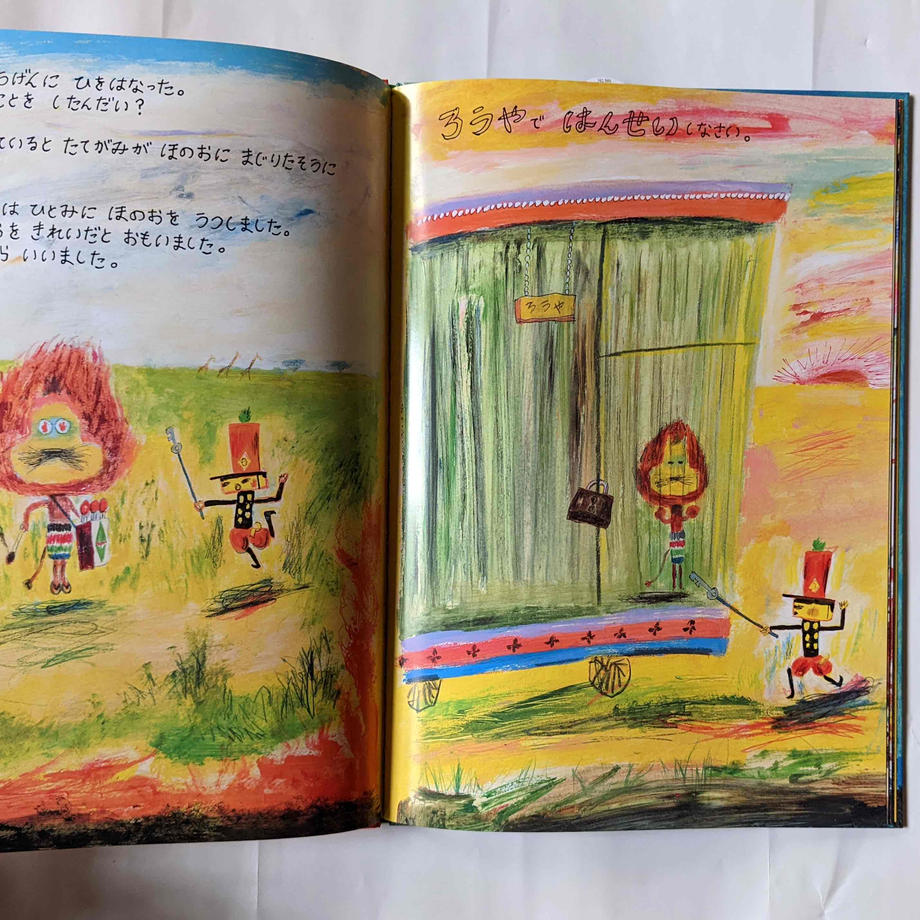 うげんに ひをはなった。
ことを したんだい?
ていると たてがみが ほのおに まじりたそうに
は ひとみに ほのおを うつしました。
るを きれいだと おもいました。
ら いいました。
ろうやで はんせいしなさい。
ろうや